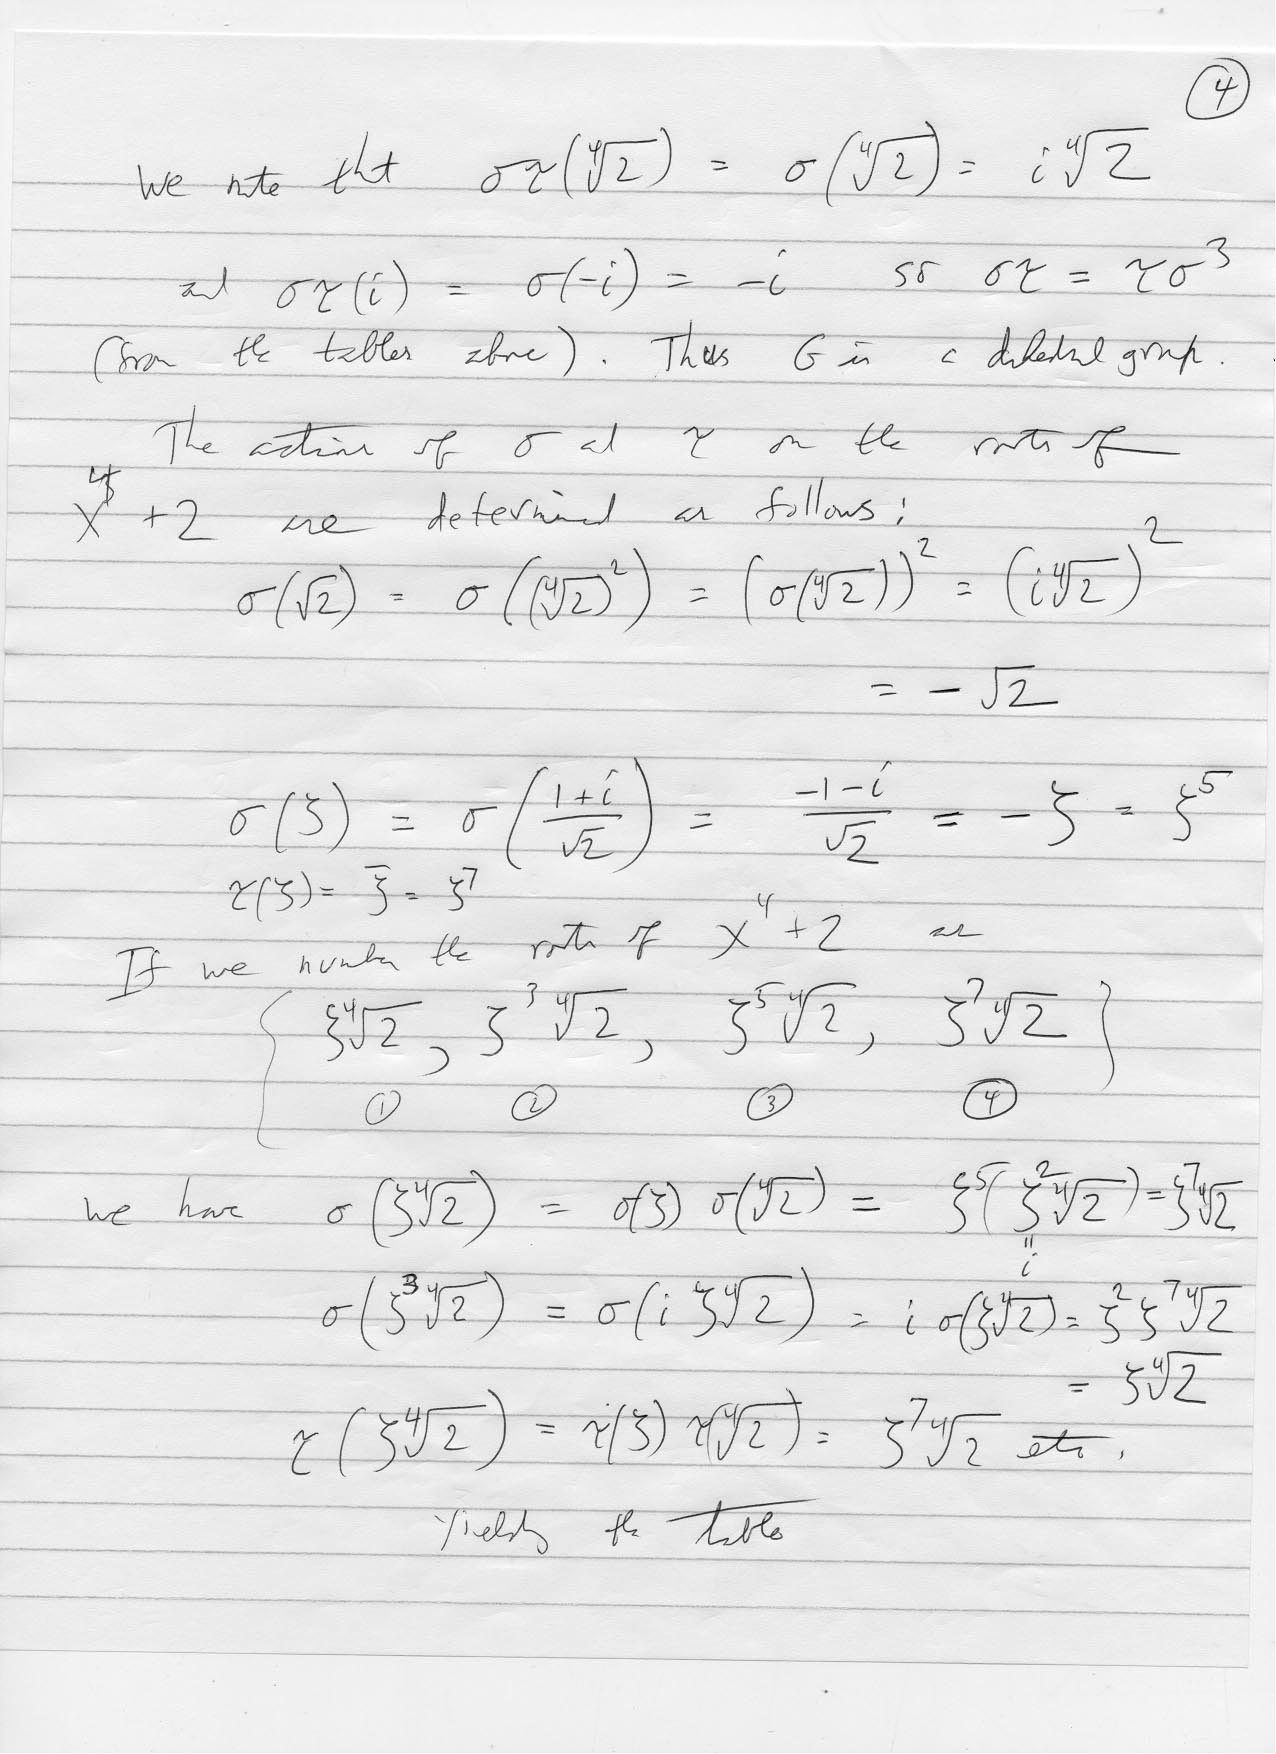 ④
We note tht στ(∜2) = σ(∜2) = i∜2
and στ(i) = σ(-i) = -i so στ = τσ³
(from the tables above). Thus G is a dihedral group.
The actions of σ and τ on the roots of
x⁴ + 2 are determined as follows:
σ(√2) = σ((∜2)²) = (σ(∜2))² = (i∜2)²
= -√2
σ(ζ) = σ((1+i)/√2) = (-1-i)/√2 = -ζ = ζ⁵
τ(ζ) = ζ̄ = ζ⁷
If we number the roots of x⁴ + 2 as
{ ζ∜2, ζ³∜2, ζ⁵∜2, ζ⁷∜2 }
① ② ③ ④
we have σ(ζ∜2) = σ(ζ) σ(∜2) = ζ⁵(ζ²∜2) = ζ⁷∜2
"
i
σ(ζ³∜2) = σ(i ζ∜2) = i σ(ζ∜2) = ζ² ζ⁷∜2
= ζ∜2
τ(ζ∜2) = τ(ζ) τ(∜2) = ζ⁷∜2 etc.
yields the tables